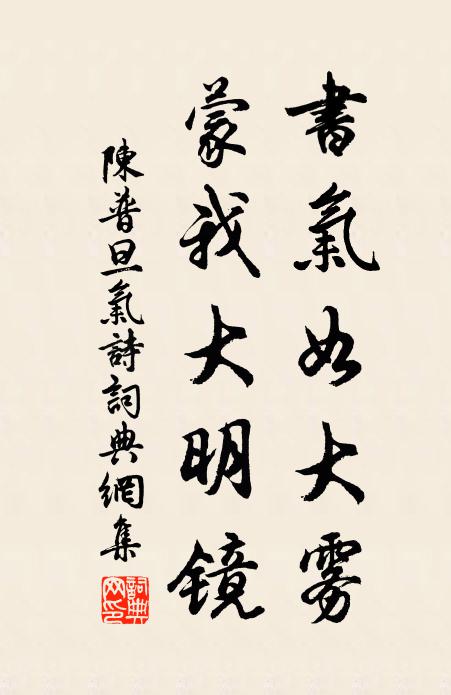 書氣如大霧
蒙我大明鏡
陳普旦氣詩詞典網集
詞典網印